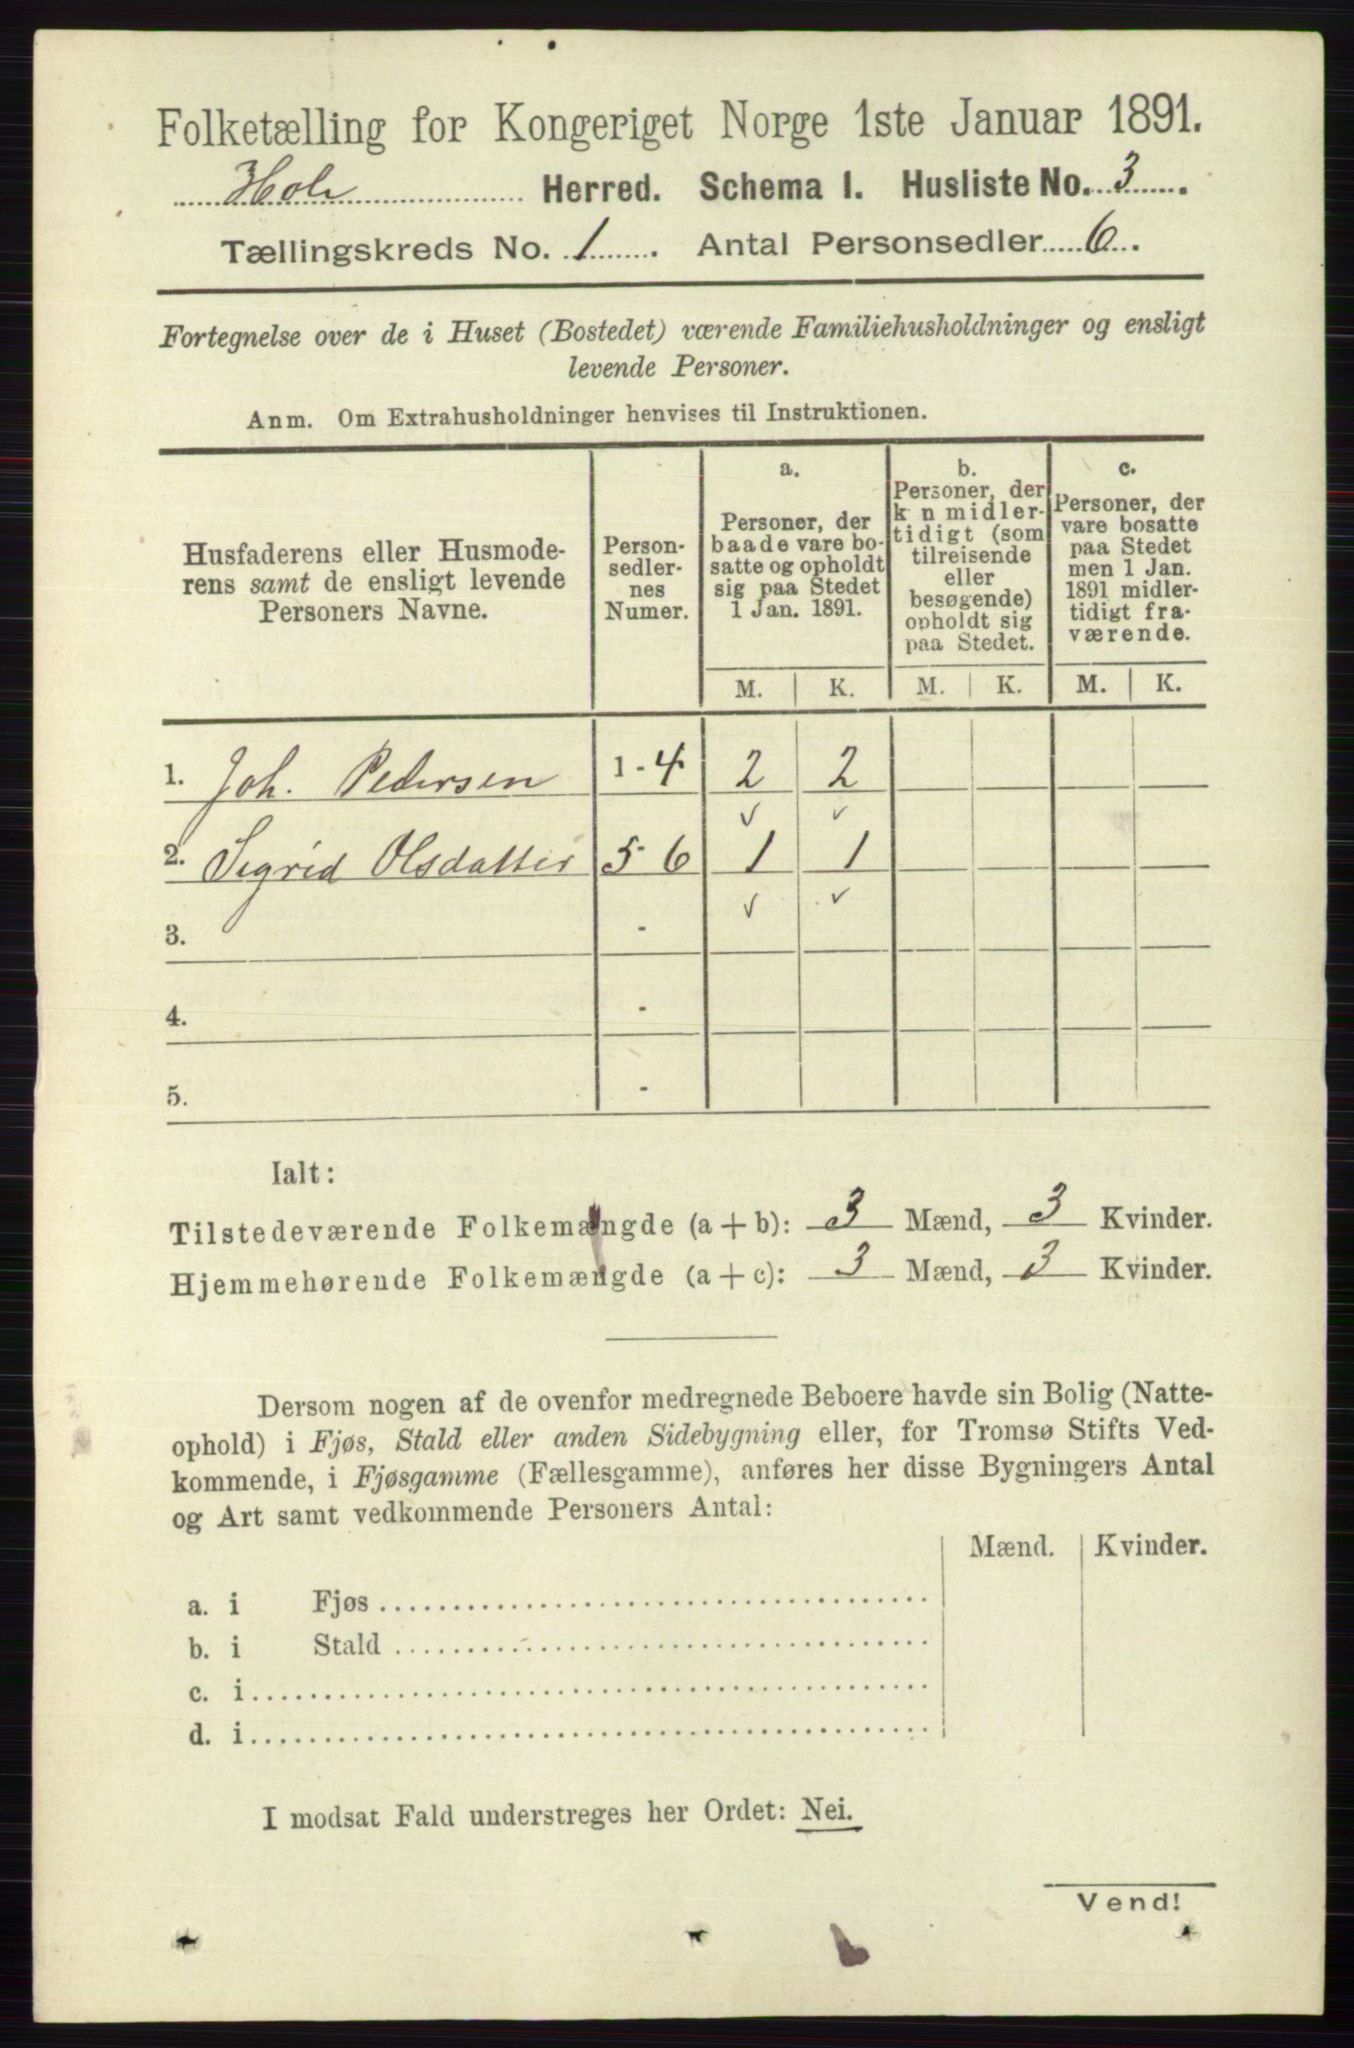 Folketælling for Kongeriget Norge 1ste Januar 1891.
Hole Herred. Schema I. Husliste No. 3
Tællingskreds No. 1. Antal Personsedler 6.
Fortegnelse over de i Huset (Bostedet) værende Familiehusholdninger og ensligt
levende Personer.
Anm. Om Extrahusholdninger henvises til Instruktionen.
Husfaderens eller Husmode-
rens samt de ensligt levende
Personers Navne.
Person-
sedler-
nes
Numer.
a.
Personer, der
baade vare bo-
satte og opholdt
sig paa Stedet
1 Jan. 1891.
b.
Personer, der
k n midler-
tidigt (som
tilreisende
eller
besøgende)
opholdt sig
paa Stedet.
c.
Personer, der
vare bosatte
paa Stedet
men 1 Jan.
1891 midler-
tidigt fra-
værende.
M. K. M. K. M. K.
1. Joh. Pedersen 1-4 2 2
2. Sigrid Olsdatter 5-6 1 1
3. -
4. -
5. -
Ialt:
Tilstedeværende Folkemængde (a + b): 3 Mænd, 3 Kvinder.
Hjemmehørende Folkemængde (a + c): 3 Mænd, 3 Kvinder.
Dersom nogen af de ovenfor medregnede Beboere havde sin Bolig (Natte-
ophold) i Fjøs, Stald eller anden Sidebygning eller, for Tromsø Stifts Ved-
kommende, i Fjøsgamme (Fællesgamme), anføres her disse Bygningers Antal
og Art samt vedkommende Personers Antal:
Mænd. Kvinder.
a. i Fjøs
b. i Stald
c. i
d. i
I modsat Fald understreges her Ordet: Nei.
Vend!